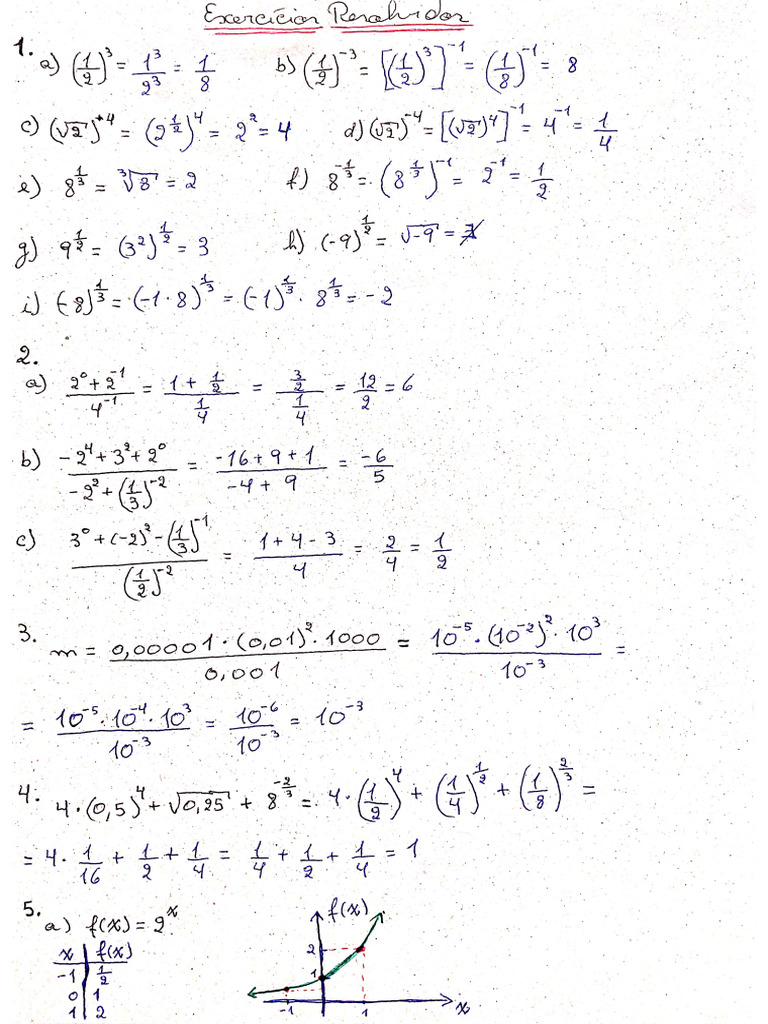 Exercícios Resolvidos
1. a) (1/2)^3 = 1^3/2^3 = 1/8   b) (1/2)^-3 = [(1/2)^3]^-1 = (1/8)^-1 = 8
c) (√2)^+4 = (2^(1/2))^4 = 2^2 = 4   d) (√2)^-4 = [(√2)^4]^-1 = 4^-1 = 1/4
e) 8^(1/3) = ∛8 = 2   f) 8^(-1/3) = (8^(1/3))^-1 = 2^-1 = 1/2
g) 9^(1/2) = (3^2)^(1/2) = 3   h) (-9)^(1/2) = √-9 = ∄
i) (-8)^(1/3) = (-1·8)^(1/3) = (-1)^(1/3) · 8^(1/3) = -2
2.
a) (2^0 + 2^-1)/(4^-1) = (1 + 1/2)/(1/4) = (3/2)/(1/4) = 12/2 = 6
b) (-2^4 + 3^2 + 2^0)/(-2^2 + (1/3)^-2) = (-16 + 9 + 1)/(-4 + 9) = -6/5
c) (3^0 + (-2)^2 - (1/3)^-1)/((1/2)^-2) = (1 + 4 - 3)/4 = 2/4 = 1/2
3. m = (0,00001 · (0,01)^2 · 1000)/(0,001) = (10^-5 · (10^-2)^2 · 10^3)/(10^-3) =
= (10^-5 · 10^-4 · 10^3)/(10^-3) = 10^-6/10^-3 = 10^-3
4. 4·(0,5)^4 + √0,25 + 8^(-2/3) = 4·(1/2)^4 + (1/4)^(1/2) + (1/8)^(2/3) =
= 4 · 1/16 + 1/2 + 1/4 = 1/4 + 1/2 + 1/4 = 1
5.
a) f(x) = 2^x
x | f(x)
-1 | 1/2
0 | 1
1 | 2
f(x)
2
1
-1 1 x